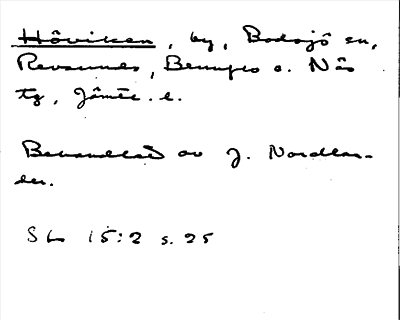 Höviken, by, Bodsjö sn,
Revsunds, Brunflo o. Näs
tg, Jämtl. l.
Behandlad av J. Nordlan-
der.
Sbs 15:2 s. 25